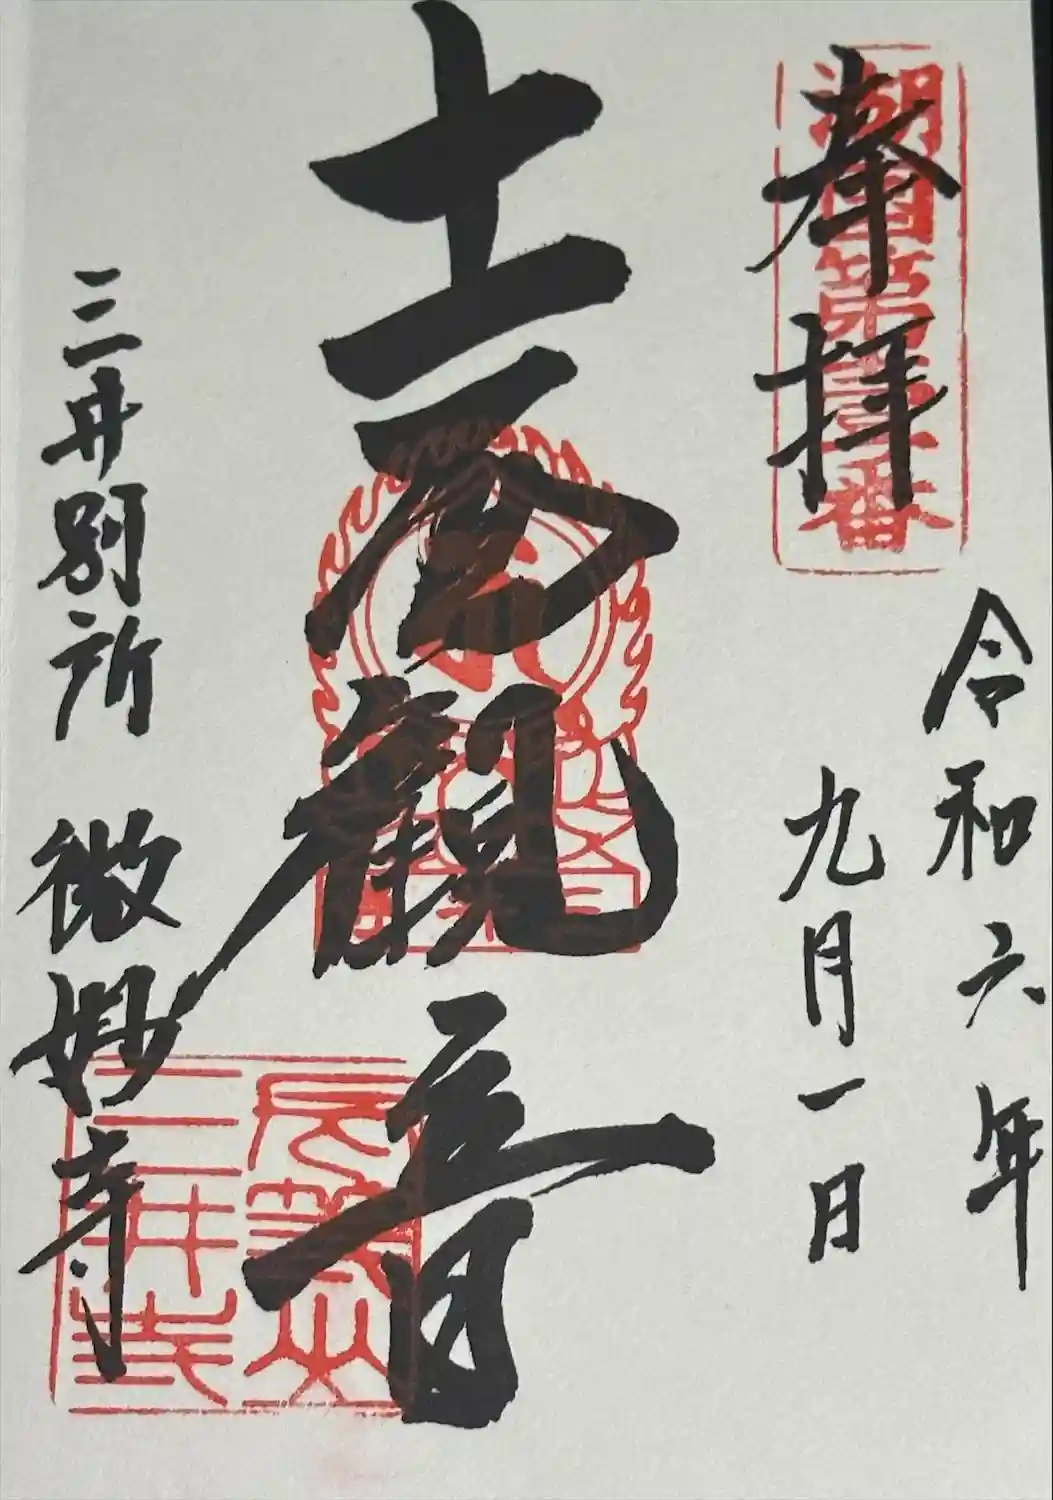 湖国第番
奉拝
令和六年
九月一日
十一面観音
三井別所 微妙寺
長等山
三井寺